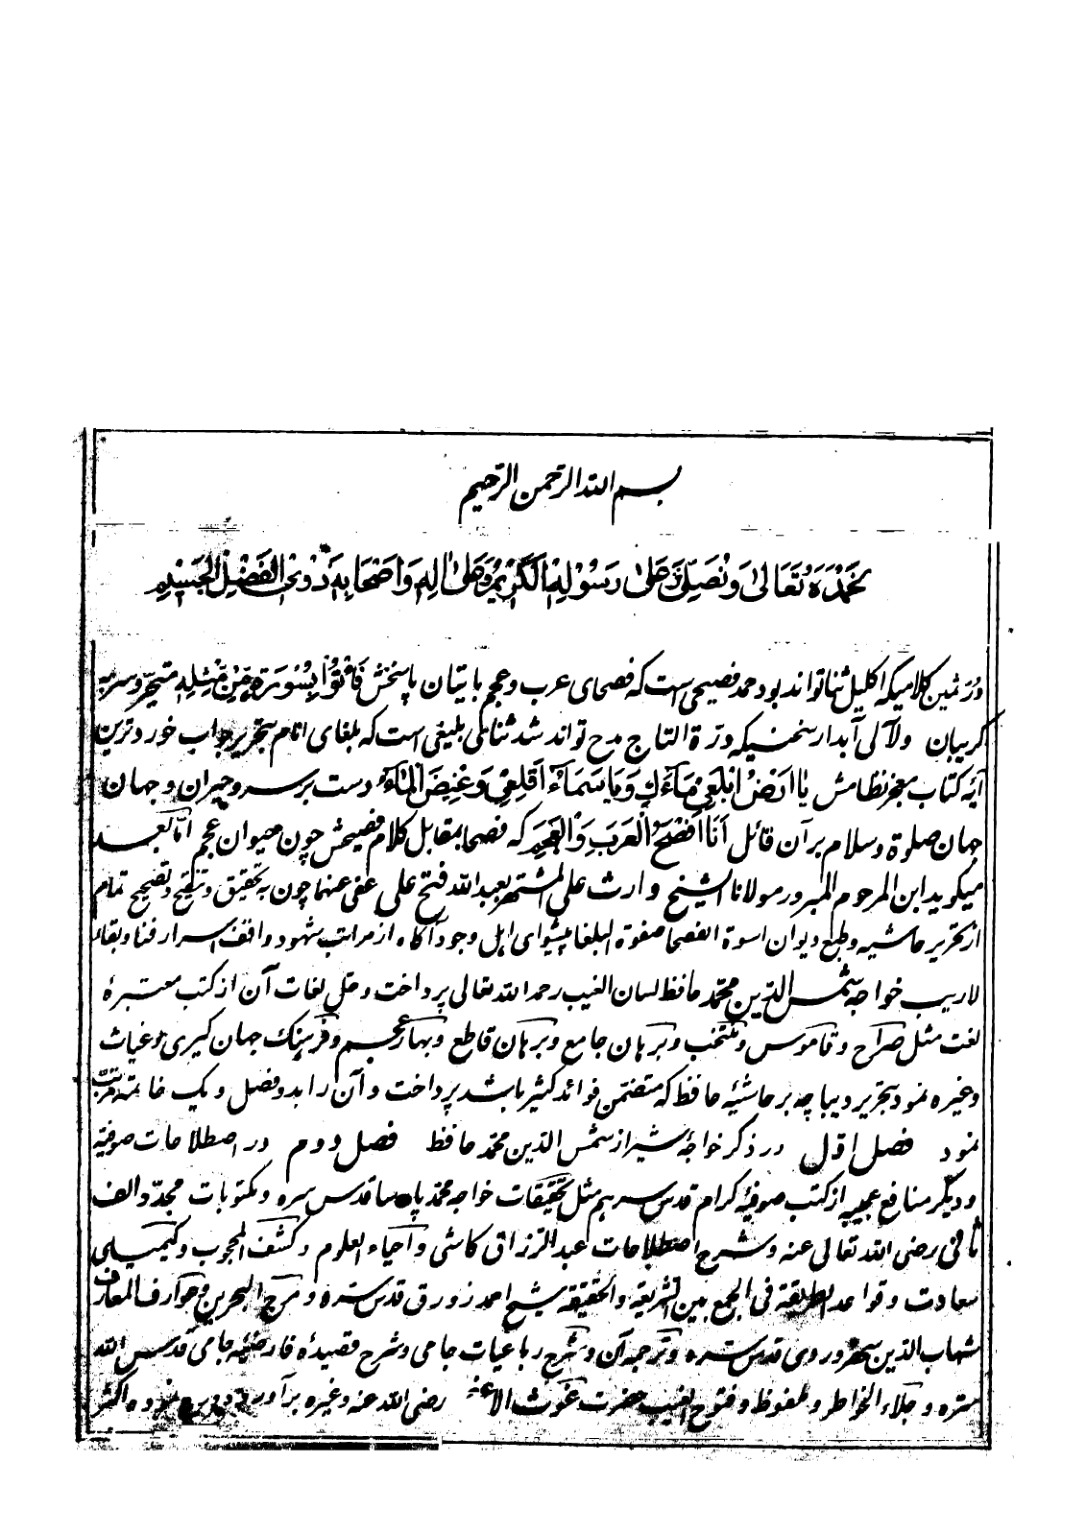 بسم الله الرحمن الرحیم
نَحْمَدُهٗ تَعَالٰی وَنُصَلِّیْ عَلٰی رَسُوْلِهِ الْکَرِیْمِ وَعَلٰی اٰلِهٖ وَاَصْحَابِهٖ ذَوِی الْفَضْلِ الْجَسِیْمِ
درّ ثمین کلامیکه اکلیل ثنا تواند بود حمد فصیحی است که فصحای عرب و عجم باتیان پاسخش فَأْتُوْا بِسُوْرَةٍ مِّنْ مِّثْلِهٖ متحیّر و سر به
گریبان ولآلی آبدار سخنیکه درة التاج مدح تواند شد ثنای بلیغی است که بلغای انام بتحریر جواب خورد ترین
آیه کتاب معجز نظامش یٰا اَرْضُ ابْلَعِیْ مَآءَكِ وَیٰا سَمَآءُ اَقْلِعِیْ وَغِیْضَ الْمَآءُ دست بر سر و حیران و جهان
جهان صلوة و سلام بر آن قائل اَنَا اَفْصَحُ الْعَرَبِ وَالْعَجَمِ که فصحا بمقابل کلام فصیحش چون حیوان عجم امّا بعد
میگوید ابن المرحوم المبرور مولانا الشیخ وارث علی المشتهر بعبد الله فتح علی عفی عنهما چون به تحقیق و تنقیح و تصحیح تمام
از تحریر حاشیه و طبع دیوان اسوة الفصحا صفوة البلغا پیشوای اهل وجود آگاه از مراتب شهود واقف اسرار فنا و بقا
لاریب خواجه شمس الدین محمد حافظ لسان الغیب رحمه الله تعالی پرداخت و حل لغات آن از کتب معتبرهٔ
لغت مثل صراح و قاموس و منتخب و برهان جامع و برهان قاطع و بهار عجم و فرهنگ جهان گیری و غیاث
وغیره نمود بتحریر دیباچه بر حاشیهٔ حافظ که متضمن فوائد کثیر باشد پرداخت و آن را بدو فصل و یک خاتمه مرتب
نمود فصل اول در ذکر خواجهٔ شیراز شمس الدین محمد حافظ فصل دوم در اصطلاحات صوفیه
و دیگر منافع عجیبه از کتب صوفیهٔ کرام قدس سرهم مثل تحقیقات خواجه محمد پارسا قدس سره و مکتوبات مجدد الف
ثانی رضی الله تعالی عنه و شرح اصطلاحات عبد الرزاق کاشی و احیاء العلوم و کشف المحجوب و کیمیای
سعادت و قواعد الطریقة فی الجمع بین الشریعة والحقیقة شیخ احمد زورق قدس سره و مرج البحرین و عوارف المعارف
شهاب الدین سهروردی قدس سره و ترجمه آن و شرح رباعیات جامی و شرح قصیدهٔ فارضیه جامی قدس الله
سره و جلاء الخاطر و ملفوظ و فتوح الغیب حضرت غوث الاعظم رضی الله عنه وغیره بر آورده اکثر